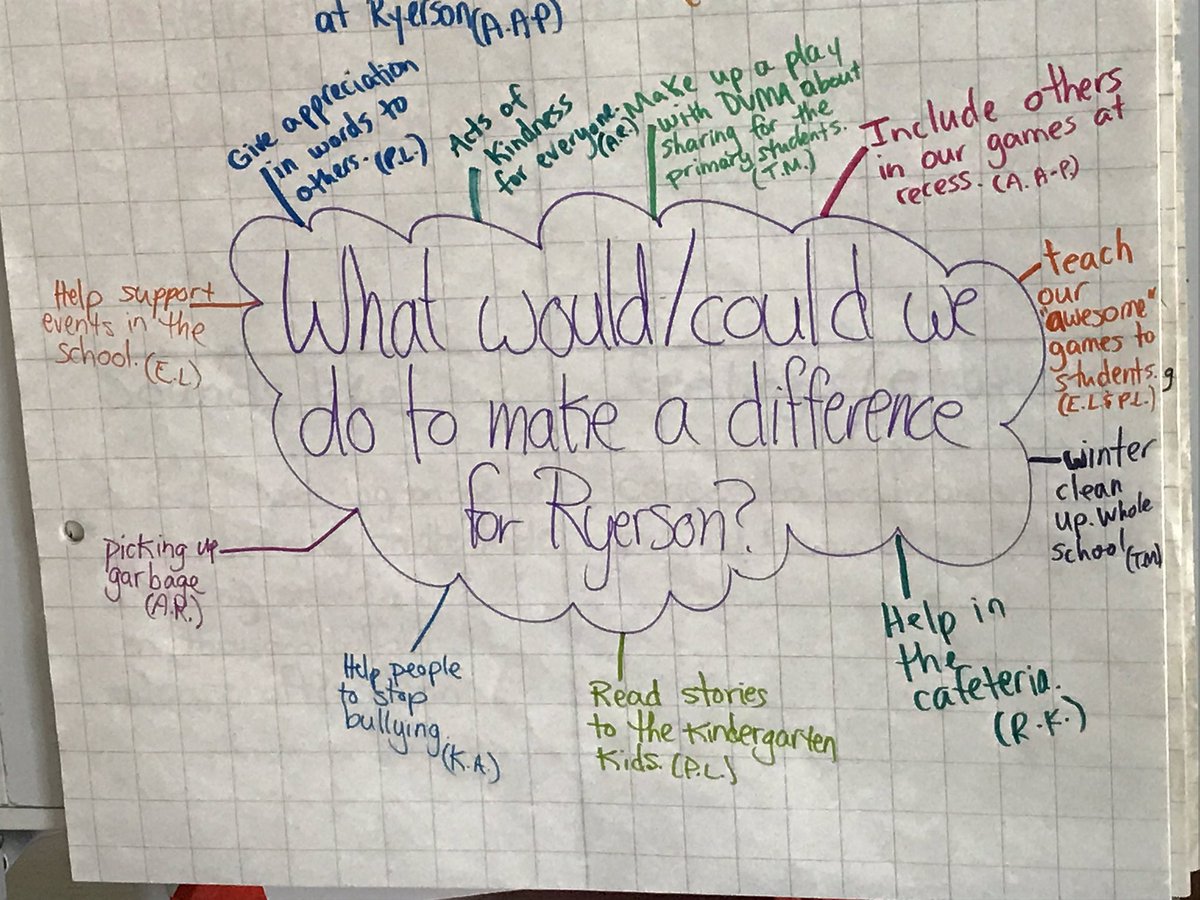 at Ryerson (A.A-P)
Give appreciation
in words to
others. (P.L.)
Acts of
Kindness
for everyone.
(A.R.)
Make up a play
with DVMA about
sharing for the
primary students.
(T.M.)
Include others
in our games at
recess. (A. A-P.)
teach
our
"awesome"
games to
students.
(E.L & P.L.)
winter
clean
up. whole
school (T.M)
Help in
the
cafeteria.
(R.K.)
Read stories
to the Kindergarten
Kids. (P.L.)
Help people
to stop
bullying.
(K.A.)
picking up
garbage
(A.R.)
Help support
events in the
school. (E.L)
What would/could we
do to make a difference
for Ryerson?